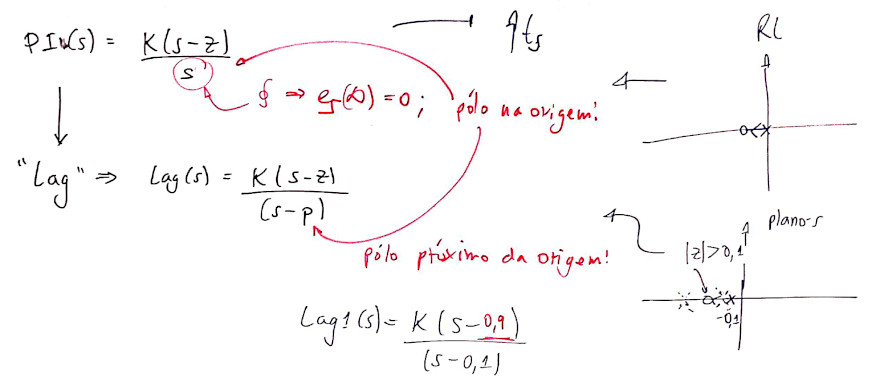 PI(s) = K(s-z)
s
↑ts
RL
∮ ⇒ es(∞)=0;
pólo na origem!
"Lag" ⇒ Lag(s) = K(s-z)
(s-p)
plano-s
|z|>0,1
pólo próximo da origem!
-0,1
Lag1(s)= K(s-0,9)
(s-0,1)